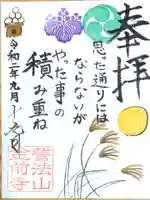 奉拝
思った通りには
ならないが
やった事の
積み重ね
令和二年九月十九日
誓法山
金前寺